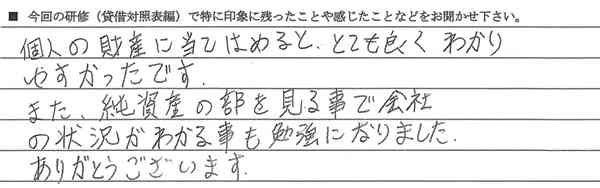 ■ 今回の研修（貸借対照表編）で特に印象に残ったことや感じたことなどをお聞かせ下さい。
個人の財産に当てはめると、とても良くわかり
やすかったです。
また、純資産の部を見る事で会社
の状況がわかる事も勉強になりました。
ありがとうございます。